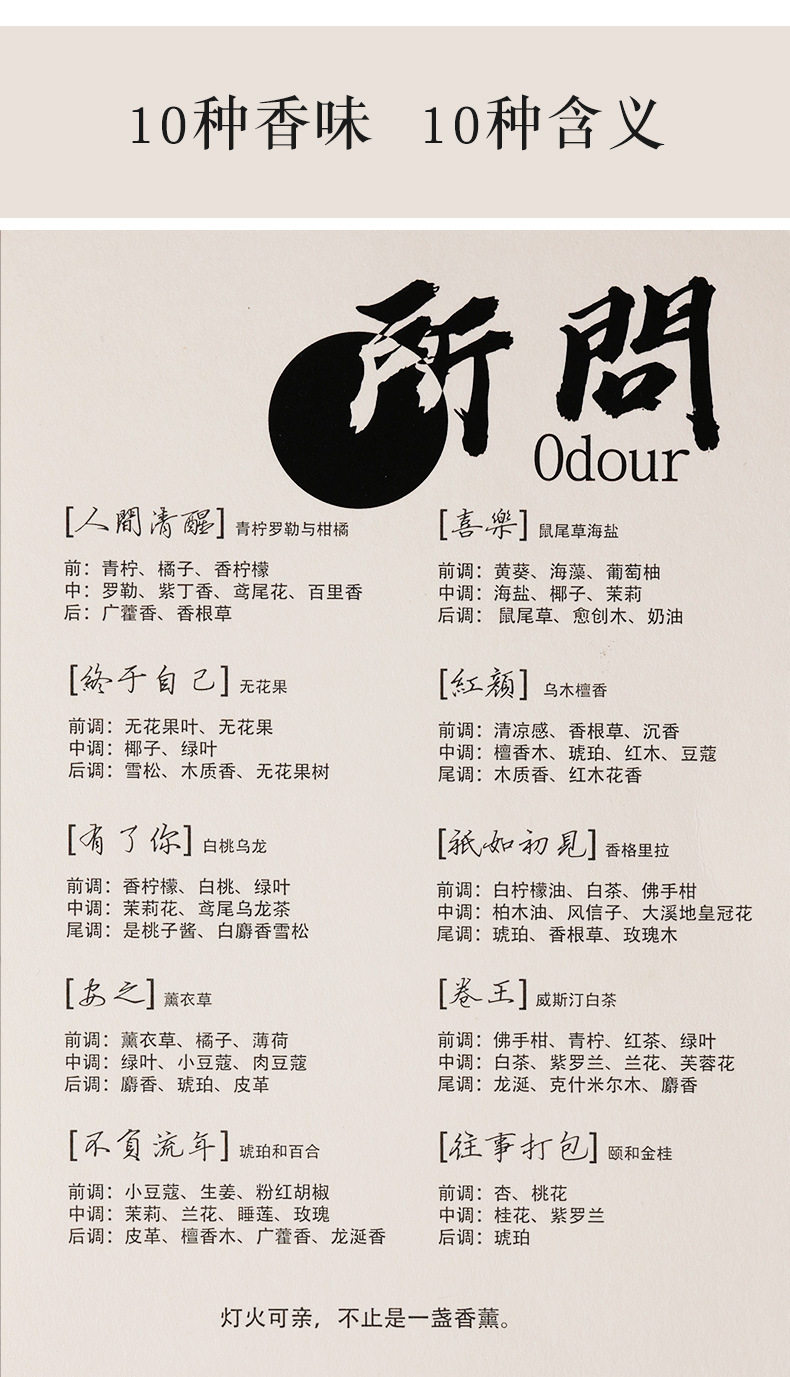 10种香味 10种含义
所問
Odour
[人間清醒] 青柠罗勒与柑橘
前：青柠、橘子、香柠檬
中：罗勒、紫丁香、鸢尾花、百里香
后：广藿香、香根草
[終于自己] 无花果
前调：无花果叶、无花果
中调：椰子、绿叶
后调：雪松、木质香、无花果树
[有了你] 白桃乌龙
前调：香柠檬、白桃、绿叶
中调：茉莉花、鸢尾乌龙茶
尾调：是桃子酱、白麝香雪松
[安之] 薰衣草
前调：薰衣草、橘子、薄荷
中调：绿叶、小豆蔻、肉豆蔻
后调：麝香、琥珀、皮革
[不負流年] 琥珀和百合
前调：小豆蔻、生姜、粉红胡椒
中调：茉莉、兰花、睡莲、玫瑰
后调：皮革、檀香木、广藿香、龙涎香
[喜樂] 鼠尾草海盐
前调：黄葵、海藻、葡萄柚
中调：海盐、椰子、茉莉
后调：鼠尾草、愈创木、奶油
[紅顏] 乌木檀香
前调：清凉感、香根草、沉香
中调：檀香木、琥珀、红木、豆蔻
尾调：木质香、红木花香
[祇如初見] 香格里拉
前调：白柠檬油、白茶、佛手柑
中调：柏木油、风信子、大溪地皇冠花
尾调：琥珀、香根草、玫瑰木
[卷王] 威斯汀白茶
前调：佛手柑、青柠、红茶、绿叶
中调：白茶、紫罗兰、兰花、芙蓉花
尾调：龙涎、克什米尔木、麝香
[往事打包] 颐和金桂
前调：杏、桃花
中调：桂花、紫罗兰
后调：琥珀
灯火可亲，不止是一盏香薰。